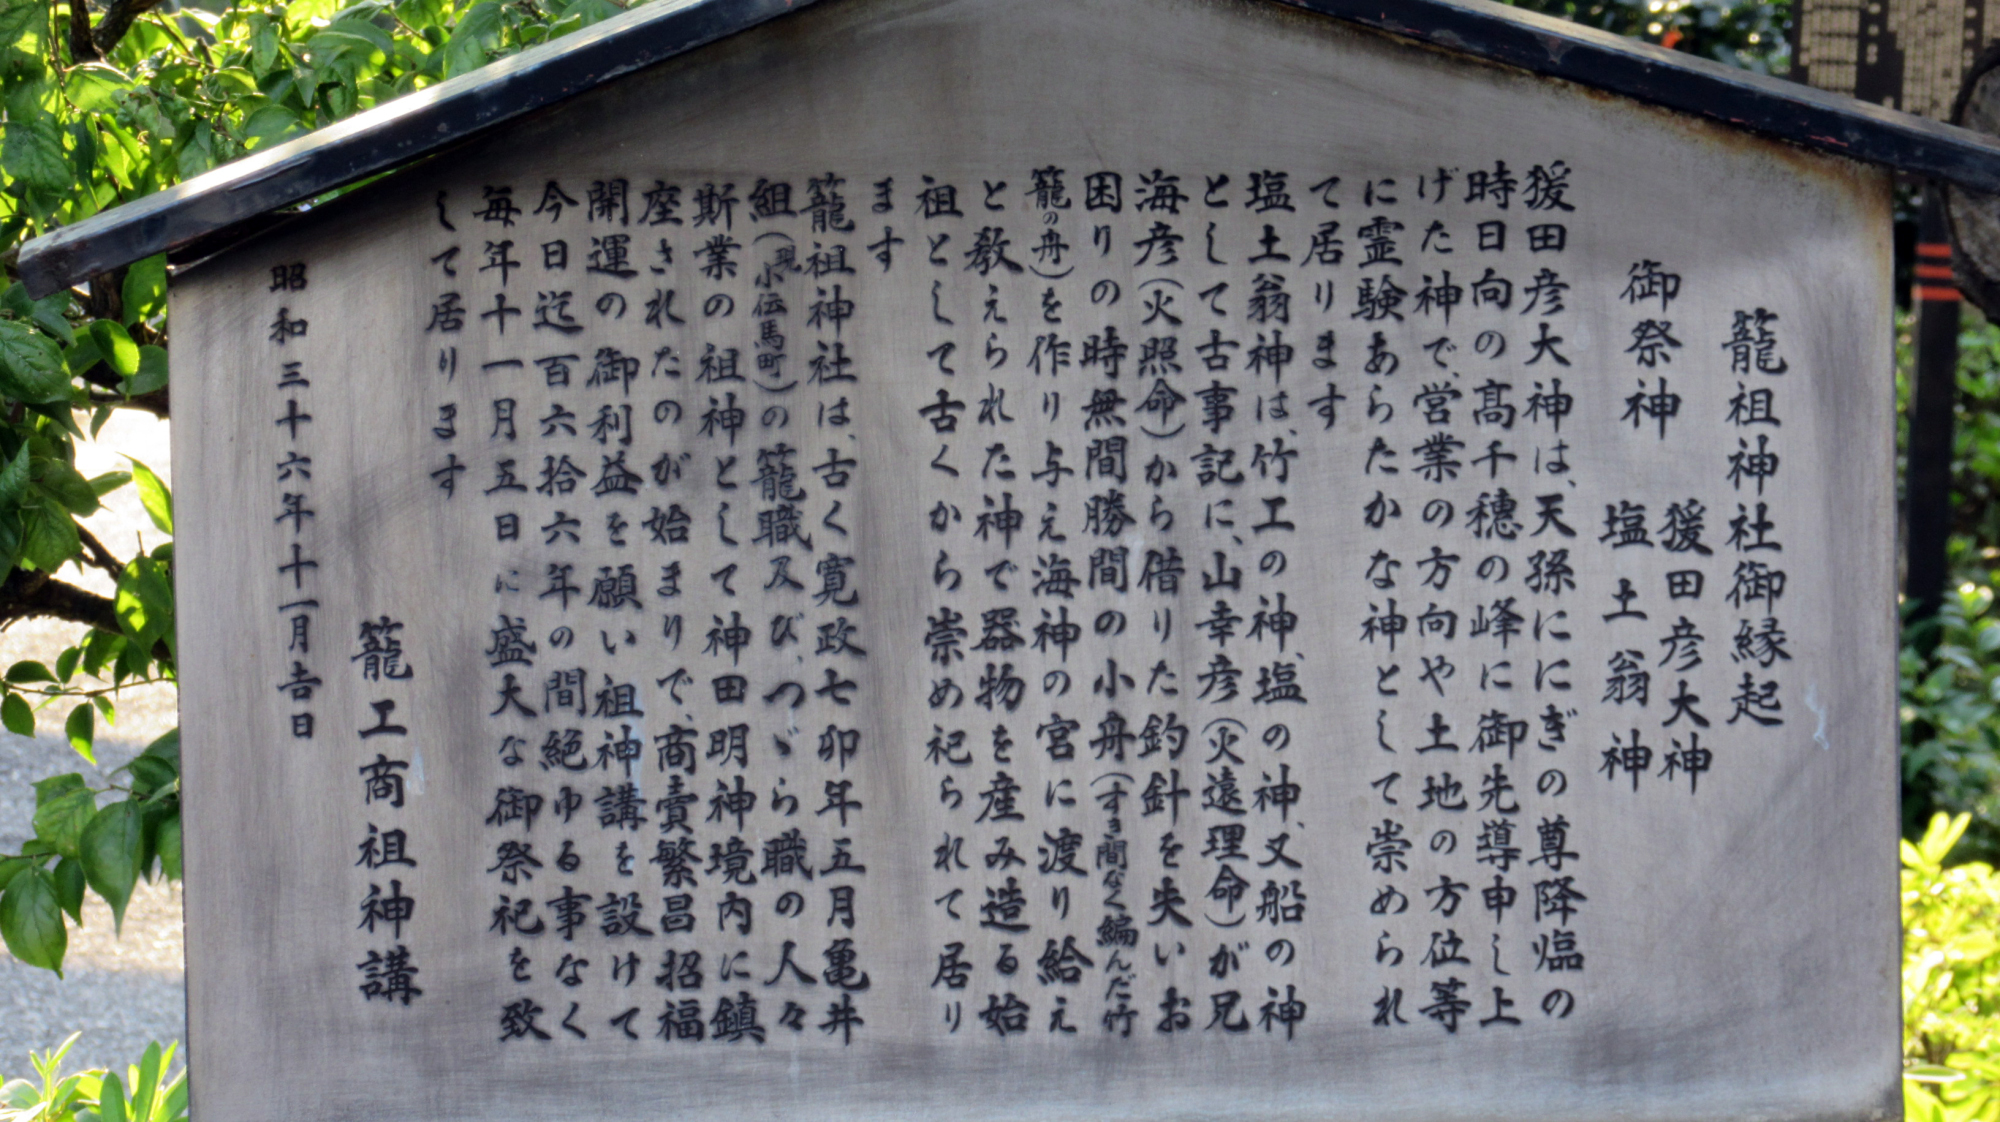 籠祖神社御縁起
御祭神
猨田彦大神
塩土翁神
猨田彦大神は、天孫ににぎの尊降臨の
時日向の髙千穂の峰に御先導申し上
げた神で、営業の方向や土地の方位等
に霊験あらたかな神として崇められ
て居ります
塩土翁神は、竹工の神、塩の神、又船の神
として古事記に、山幸彦(火遠理命)が兄
海彦(火照命)から借りた釣針を失いお
困りの時無間勝間の小舟(すき間なく編んだ竹
籠の舟)を作り与え海神の宮に渡り給え
と教えられた神で器物を産み造る始
祖として古くから崇め祀られて居り
ます
籠祖神社は、古く寛政七卯年五月亀井
組(現小伝馬町)の籠職及び、つゞら職の人々
斯業の祖神として神田明神境内に鎮
座されたのが始まりで、商賣繁昌招福
開運の御利益を願い祖神講を設けて
今日迄百六拾六年の間絶ゆる事なく
毎年十一月五日に盛大な御祭祀を致
して居ります
籠工商祖神講
昭和三十六年十一月吉日